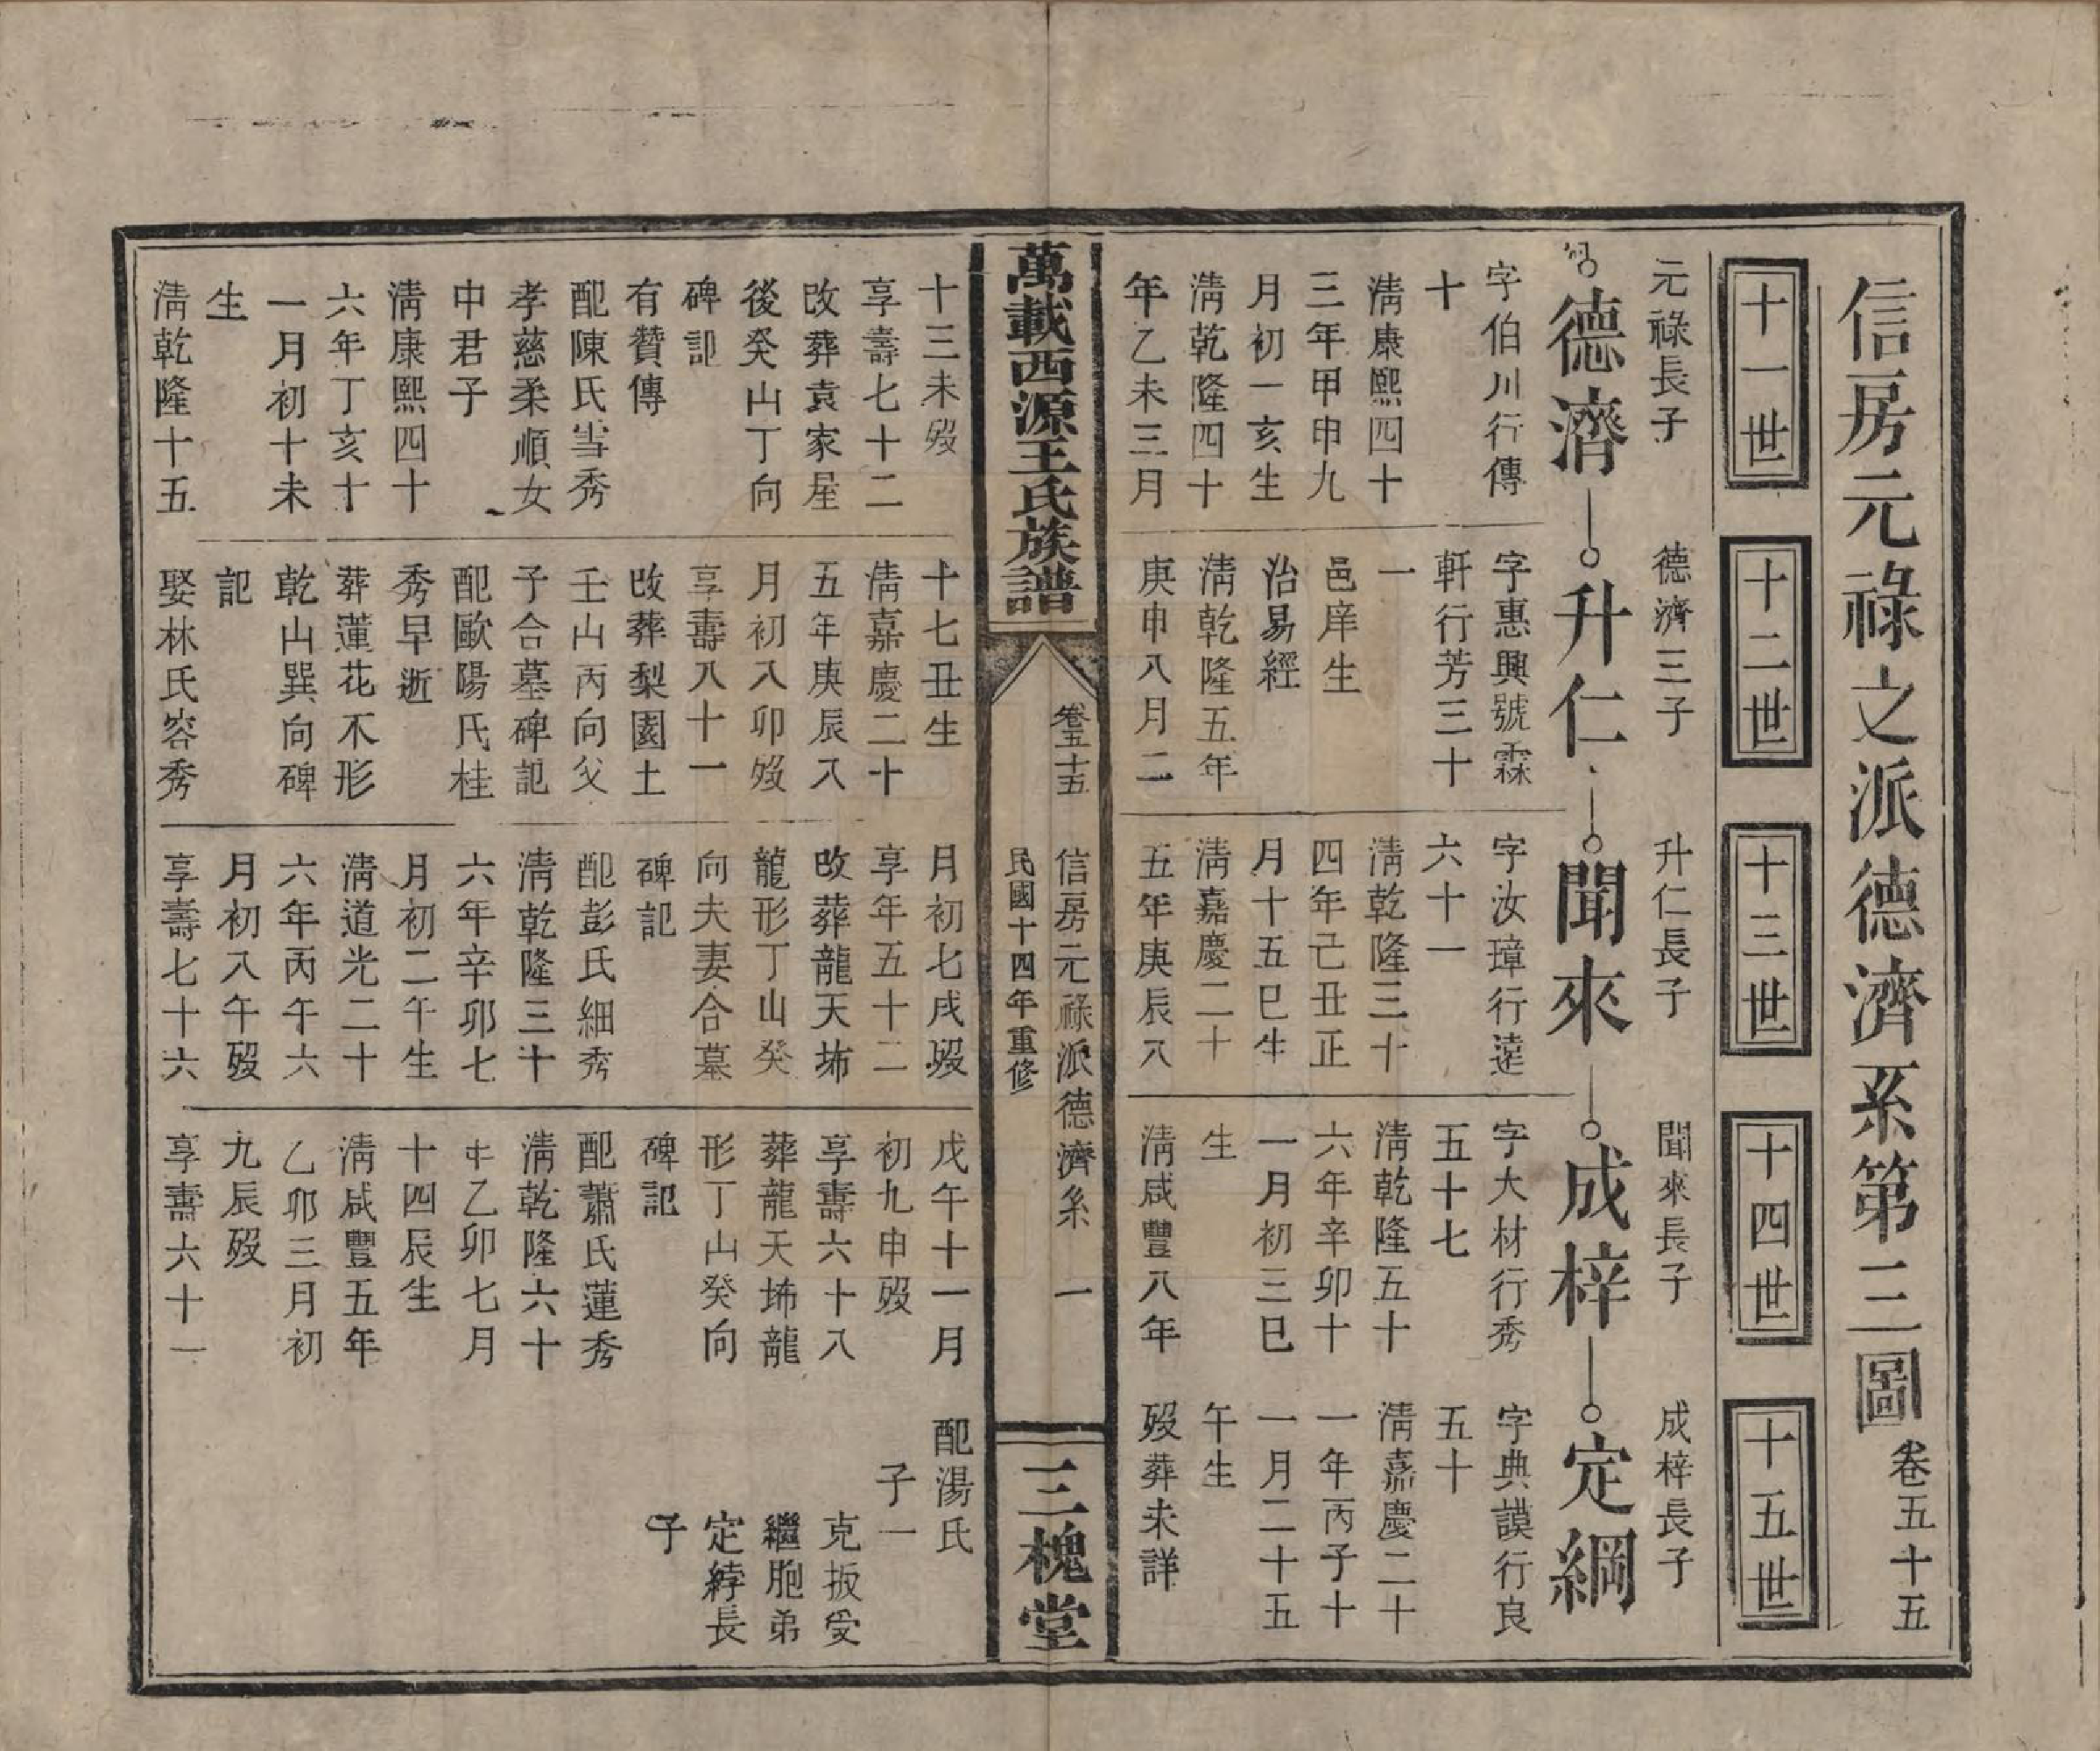 信房元祿之派德濟系第三圖 卷五十五
十一世
十二世
十三世
十四世
十五世
元祿長子
德濟
字伯川行傳
十
淸康熙四十
三年甲申九
月初一亥生
淸乾隆四十
年乙未三月
十三未歿
享壽七十二
改葬袁家屋
後癸山丁向
碑記
有贊傳
配陳氏雪秀
孝慈柔順女
中君子
淸康熙四十
六年丁亥十
一月初十未
生
淸乾隆十五
德濟三子
升仁
字惠興號霖
軒行芳三十
一
邑庠生
治易經
淸乾隆五年
庚申八月二
十七丑生
淸嘉慶二十
五年庚辰八
月初八卯歿
享壽八十一
改葬梨園土
壬山丙向父
子合墓碑記
配歐陽氏桂
秀早逝
葬蓮花不形
乾山巽向碑
記
娶林氏容秀
升仁長子
聞來
字汝璋行遠
六十一
淸乾隆三十
四年己丑正
月十五巳生
淸嘉慶二十
五年庚辰八
月初七戌歿
享年五十二
改葬龍天㘵
龍形丁山癸
向夫妻合墓
碑記
配彭氏細秀
淸乾隆三十
六年辛卯七
月初二午生
淸道光二十
六年丙午六
月初八午歿
享壽七十六
聞來長子
成梓
字大材行秀
五十七
淸乾隆五十
六年辛卯十
一月初三巳
生
淸咸豐八年
戊午十一月
初九申歿
享壽六十八
葬龍天㘵龍
形丁山癸向
碑記
配蕭氏蓮秀
淸乾隆六十
年乙卯七月
十四辰生
淸咸豐五年
乙卯三月初
九辰歿
享壽六十一
成梓長子
定綱
字典謨行良
五十
淸嘉慶二十
一年丙子十
一月二十五
午生
歿葬未詳
配湯氏
子一
克扳受
繼胞弟
定綍長
子
萬載西源王氏族譜
卷五十五
信房元祿派德濟系 一
民國十四年重修
三槐堂